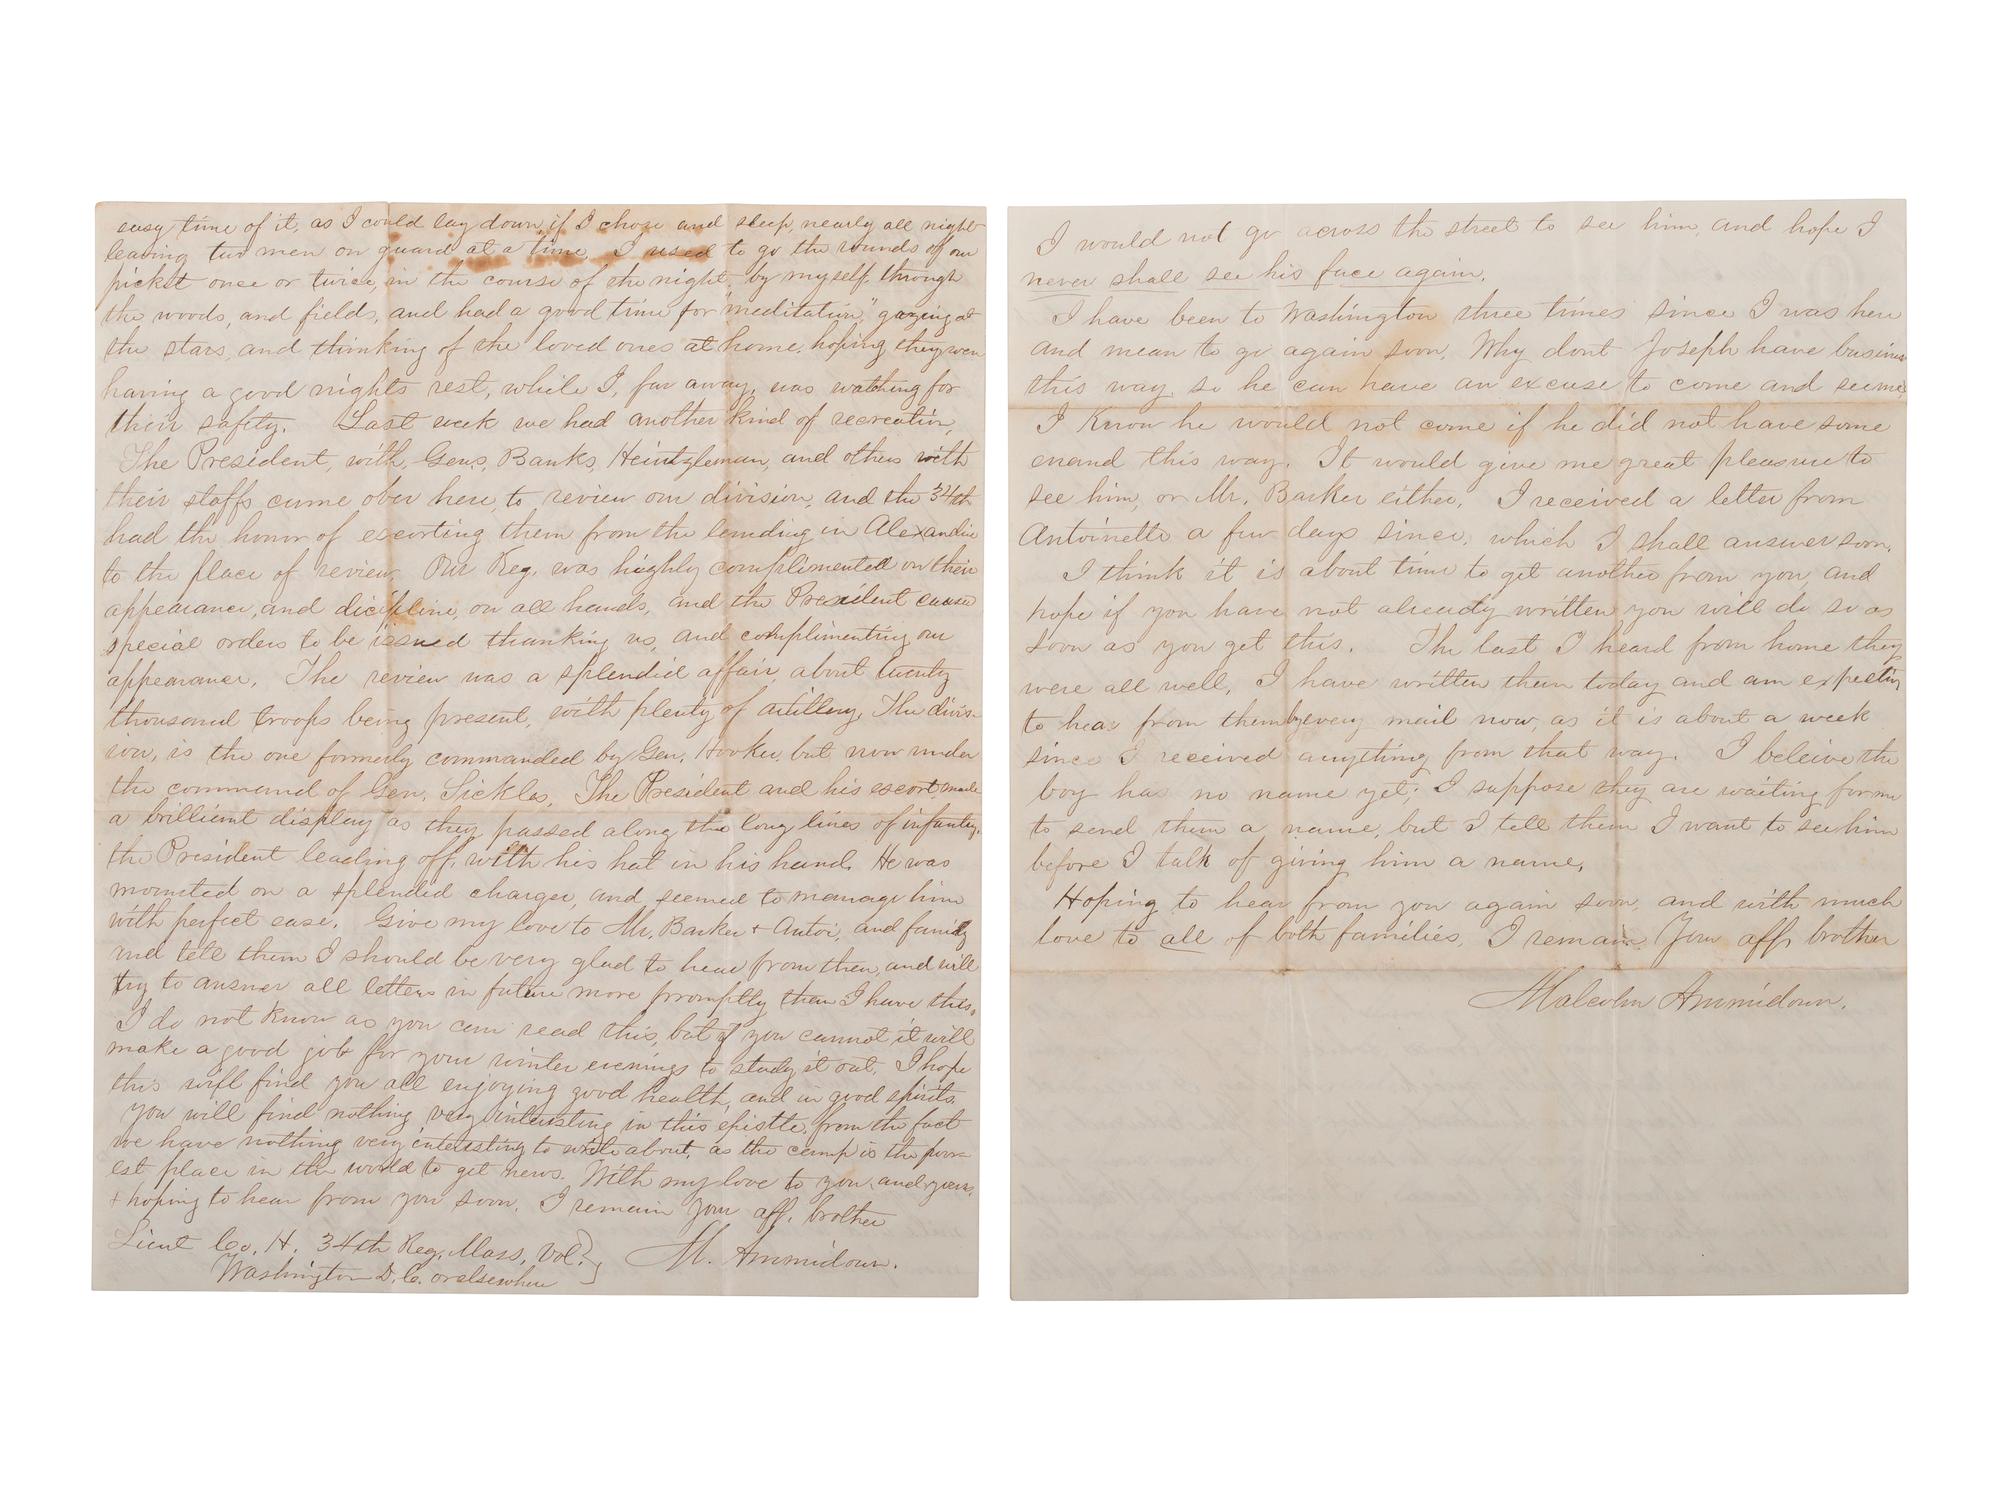 easy time of it, as I could lay down, if I chose and sleep, nearly all night
leaving two men on guard at a time. I used to go the rounds of our
picket once or twice, in the course of the night, by myself, through
the woods, and fields, and had a good time for "meditation," gazing at
the stars, and thinking of the loved ones at home, hoping they were
having a good nights rest, while I, far away, was watching for
their safety. Last week we had another kind of recreation,
The President, with, Gens, Banks, Heintzleman, and others with
their staffs came over here, to review our division, and the 34th
had the honor of escorting them from the landing in Alexandria
to the place of review. Our Reg. was highly complimented on their
appearance, and dicipline, on all hands, and the President cause
special orders to be issued thanking us, and complimenting our
appearance. The review was a splendid affair, about twenty
thousand troops being present, with plenty of artillery. The divis-
ion, is the one formerly commanded by Gen. Hooker, but now under
the command of Gen. Sickles. The President and his escort made
a brilliant display as they passed along the long lines of infantry,
the President leading off, with his hat in his hand. He was
mounted on a splendid charger, and seemed to manage him
with perfect ease. Give my love to Mr. Barker + Antoi, and family
and tell them I should be very glad to hear from them, and will
try to answer all letters in future more promptly than I have this.
I do not know as you can read this, but if you cannot it will
make a good job for your winter evenings to study it out. I hope
this will find you all enjoying good health, and in good spirits.
You will find nothing very interesting in this epistle, from the fact
we have nothing very interesting to write about, as the camp is the poor-
est place in the world to get news. With my love to you, and yours,
+ hoping to hear from you soon. I remain your aff. brother
Lieut Co. H. 34th Reg. Mass. Vol. } M. Ammidown.
Washington D. C. or elsewhere
I would not go across the street to see him, and hope I
never shall see his face again.
I have been to Washington three times since I was here
and mean to go again soon. Why dont Joseph have business
this way, so he can have an excuse to come and see me,
I know he would not come if he did not have some
errand this way. It would give me great pleasure to
see him, or Mr. Barker either. I received a letter from
Antoinette a few days since, which I shall answer soon.
I think it is about time to get another from you, and
hope if you have not already written you will do so as
soon as you get this. The last I heard from home they
were all well, I have written them today and am expecting
to hear from them by every mail now, as it is about a week
since I received anything from that way. I beleive the
boy has no name yet; I suppose they are waiting for me
to send them a name, but I tell them I want to see him
before I talk of giving him a name,
Hoping to hear from you again soon, and with much
love to all of both families, I remain Your aff, brother
Malcolm Ammidown.